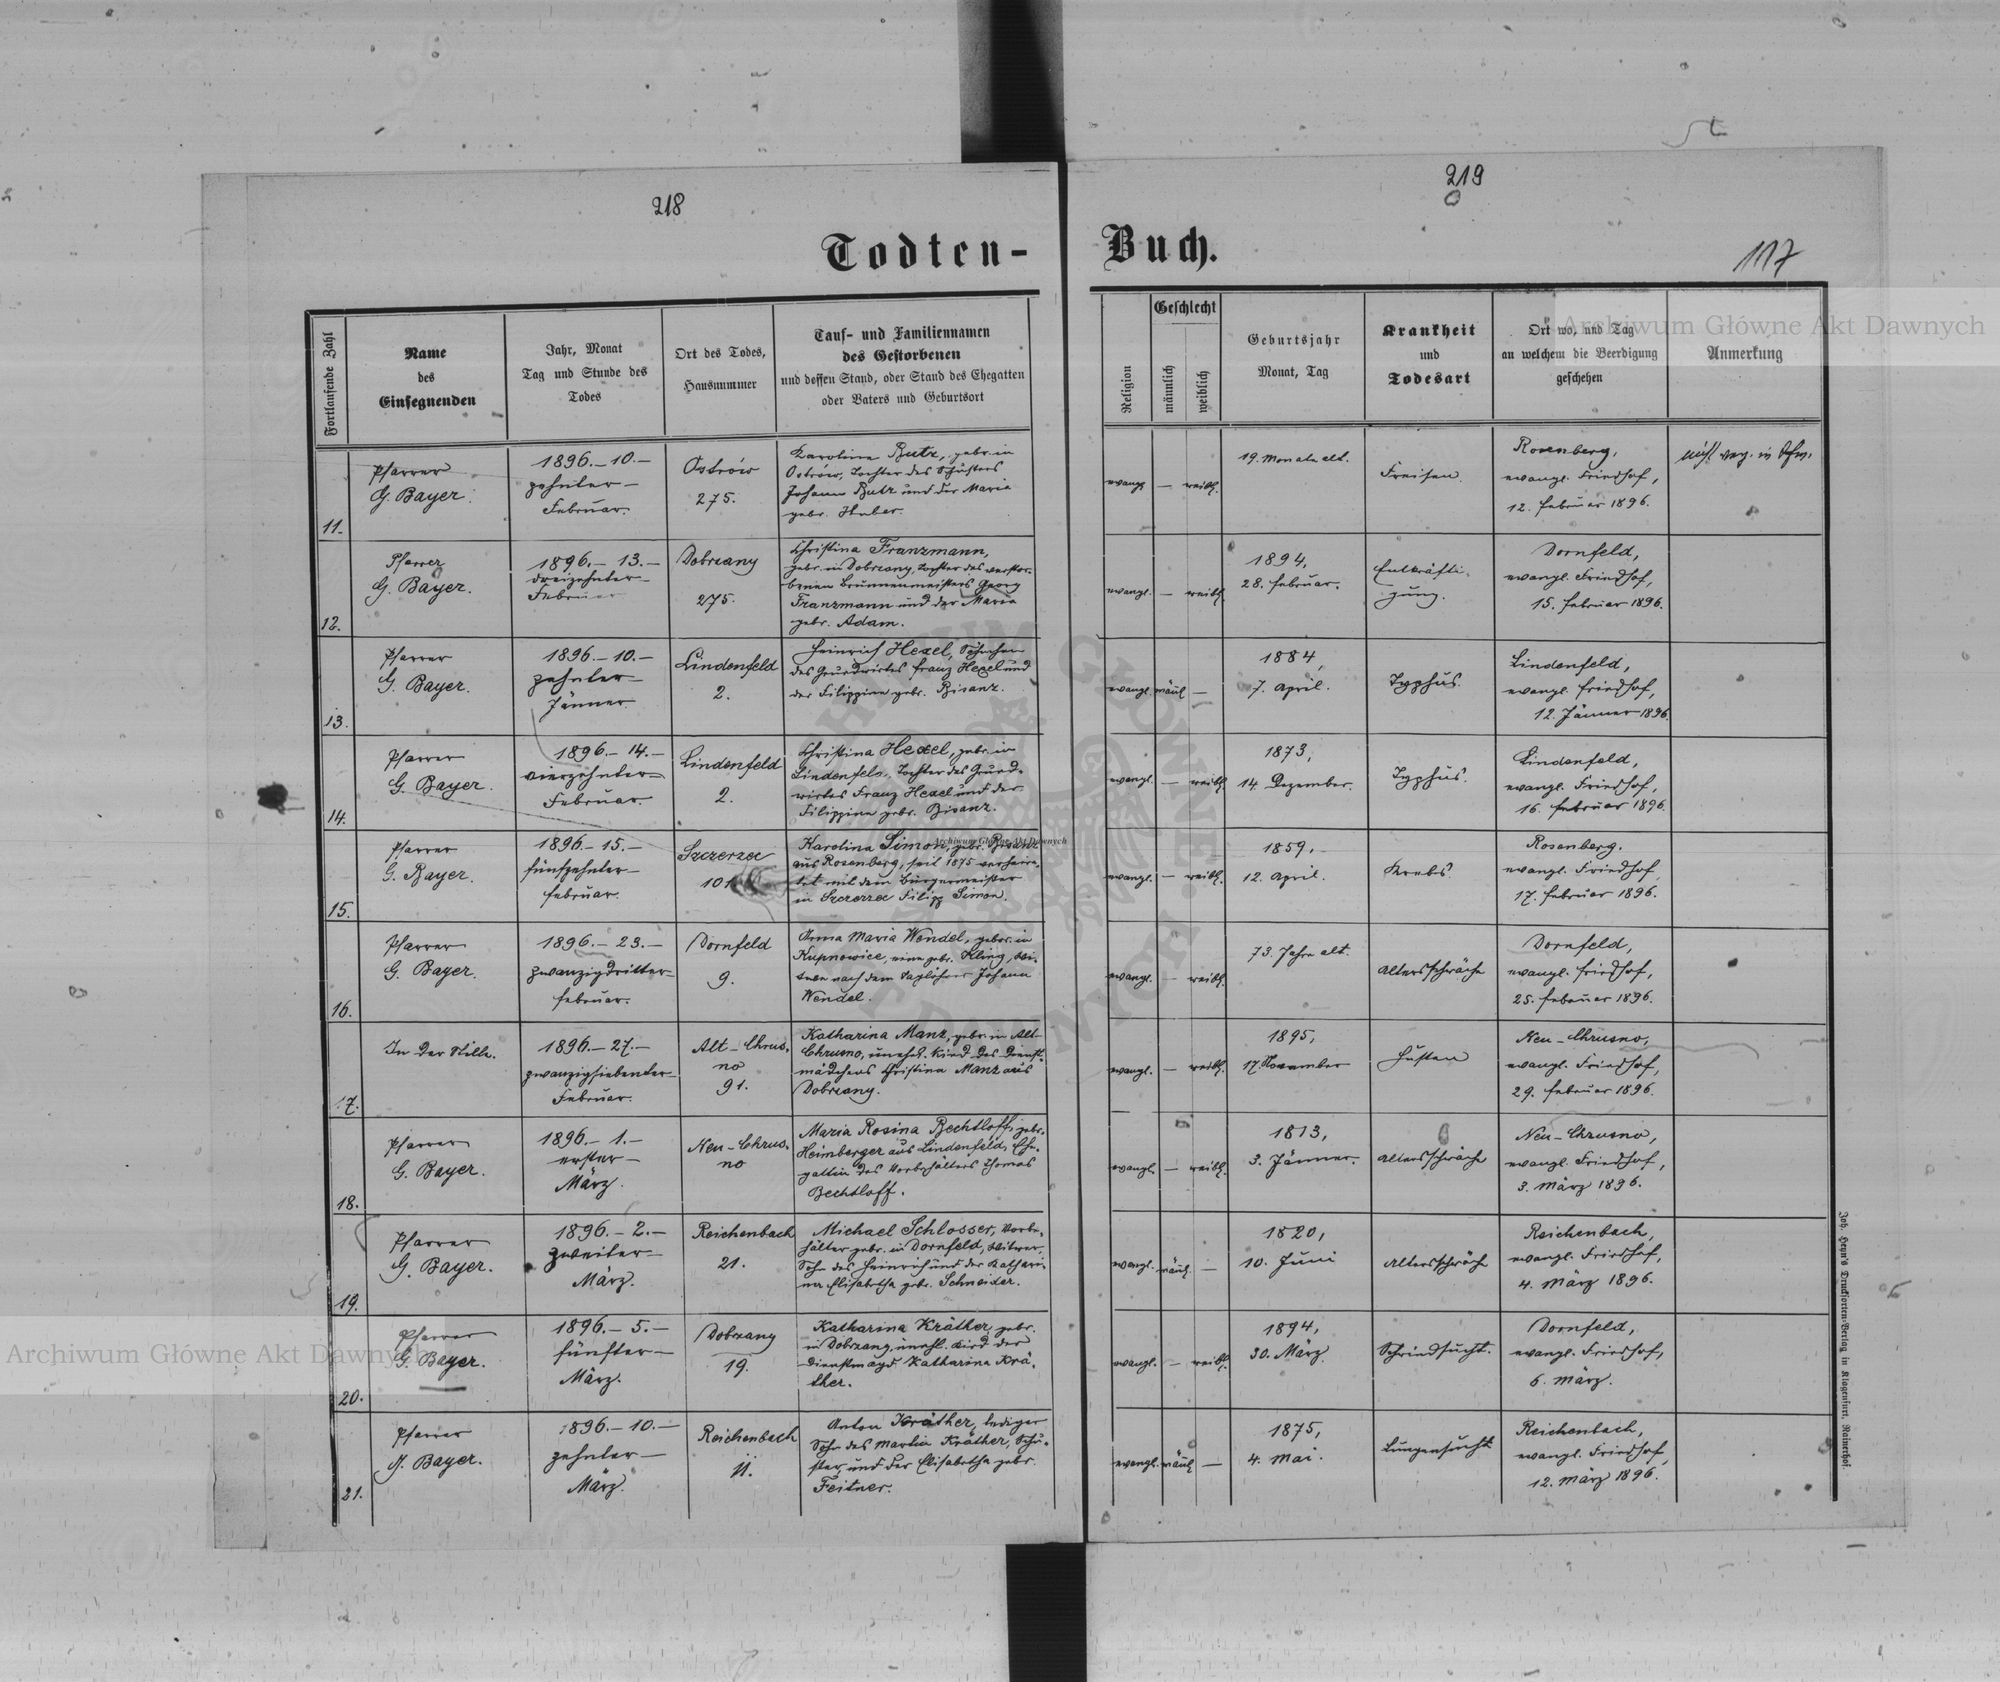 218
219
117
Todten-
Buch.
Fortlaufende Zahl
Name
des
Einsegnenden
Jahr, Monat
Tag und Stunde des
Todes
Ort des Todes,
Hausnummer
Tauf- und Familiennamen
des Gestorbenen
und dessen Stand, oder Stand des Ehegatten
oder Vaters und Geburtsort
Religion
Geschlecht
männlich
weiblich
Geburtsjahr
Monat, Tag
Krankheit
und
Todesart
Ort wo, und Tag
an welchem die Beerdigung
geschehen
Anmerkung
11.
Pfarrer
G. Bayer.
1896.- 10.-
zehnter-
Februar.
Ostrów
275.
Karolina Butz, gebr. in
Ostrów, Tochter des Schusters
Johann Butz und der Maria
gebr. Huber.
evangl. — weibl.
19. Monate alt.
Freisen.
Rosenberg,
evangl. Friedhof,
12. Februar 1896.
12.
Pfarrer
G. Bayer.
1896.- 13.-
dreizehnter-
Februar
Dobrzany
275.
Christina Franzmann,
gebr. in Dobrzany, Tochter des verstor-
benen Brunnenmeisters Georg
Franzmann und der Maria
gebr. Adam.
evangl. — weibl.
1894,
28. Februar.
Entkräfti-
gung.
Dornfeld,
evangl. Friedhof,
15. Februar 1896.
13.
Pfarrer
G. Bayer.
1896.- 10.-
zehnter
Jänner
Lindenfeld
2.
Heinrich Hexel, Söhnchen
des Grundwirtes Franz Hexel und
der Filippine gebr. Bisanz.
evangl. mänl. —
1884,
7. April.
Typhus.
Lindenfeld,
evangl. Friedhof,
12. Jänner 1896.
14.
Pfarrer
G. Bayer.
1896.- 14.-
vierzehnter-
Februar.
Lindenfeld
2.
Christina Hexel, gebr. in
Lindenfeld, Tochter des Grund-
wirtes Franz Hexel und der
Filippine gebr. Bisanz.
evangl. — weibl.
1873,
14. Dezember.
Typhus.
Lindenfeld,
evangl. Friedhof,
16. Februar 1896.
15.
Pfarrer
G. Bayer.
1896.- 15.-
fünfzehnter-
Februar.
Szczerzec
101
Karolina Simon, gebr. Bisanz
aus Rosenberg, seit 1875 verheira-
tet mit dem Bürgermeister
in Szczerzec Filipp Simon.
evangl. — weibl.
1859,
12. April.
Krebs
Rosenberg.
evangl. Friedhof
17. Februar 1896.
16.
Pfarrer
G. Bayer.
1896.- 23.-
zwanzigdritter-
Februar.
Dornfeld
9.
Anna Maria Wendel, gebor. in
Kupnowice, eine gebr. Kling, Wi-
twe nach dem Taglöhner Johann
Wendel.
evangl. — weibl.
73. Jahre alt.
Altersschwäche
Dornfeld,
evangl. Friedhof,
25. Februar 1896.
17.
In der Stille.
1896.- 27.-
zwanzigsiebenter-
Februar.
Alt-Chrus-
no
91.
Katharina Manz, gebr. in Alt-
Chrusno, unehel. Kind des Dienst-
mädchens Christina Manz aus
Dobrzany.
evangl. — weibl.
1895,
17. November
Husten
Neu-Chrusno,
evangl. Friedhof,
29. Februar 1896.
18.
Pfarrer
G. Bayer.
1896.- 1.-
erster-
März.
Neu-Chrus-
no
Maria Rosina Bechtloff, gebr.
Heimberger aus Lindenfeld, Ehe-
gattin des Vorbehälters Thomas
Bechtloff.
evangl. — weibl.
1813,
3. Jänner.
Altersschwäche
Neu-Chrusno,
evangl. Friedhof,
3. März 1896.
19.
Pfarrer
G. Bayer.
1896.- 2.-
zweiter-
März.
Reichenbach
21.
Michael Schlosser, Vorbe-
hälter gebr. in Dornfeld, Witwer,
Sohn des Heinrich und der Kathari-
na Elisabetha gebr. Schneider.
evangl. mänl. —
1820,
10. Juni
Altersschwäche
Reichenbach,
evangl. Friedhof,
4. März 1896.
20.
Pfarrer
G. Bayer.
1896.- 5.-
fünfter-
März.
Dobrzany
19.
Katharina Kräther, gebr.
in Dobrzany, unehl. Kind der
Dienstmagd Katharina Krä-
ther.
evangl. — weibl.
1894,
30. März.
Schwindsucht.
Dornfeld,
evangl. Friedhof,
6. März.
21.
Pfarrer
G. Bayer.
1896.- 10.-
zehnter-
März.
Reichenbach
11.
Anton Kräther, lediger
Sohn des Martin Kräther, Schu-
ster, und der Elisabetha gebr.
Feitner.
evangl. mänl. —
1875,
4. Mai.
Lungensucht
Reichenbach,
evangl. Friedhof,
12. März 1896.
Joh. Heyn's Drucksorten-Verlag in Klagenfurt, Rainerhof.
Archiwum Główne Akt Dawnych
Archiwum Główne Akt Dawnych
Archiwum Główne Akt Dawnych